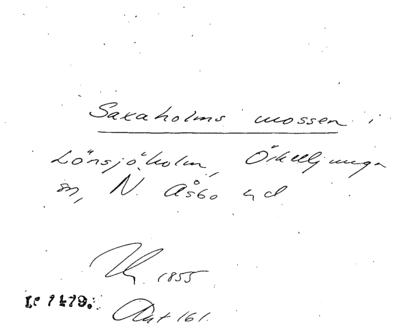 Saxaholms mossen i
Lönsjöholm, Örkelljunga
sn, N. Åsbo hd
1855
Ic 1479.
Aut 161.